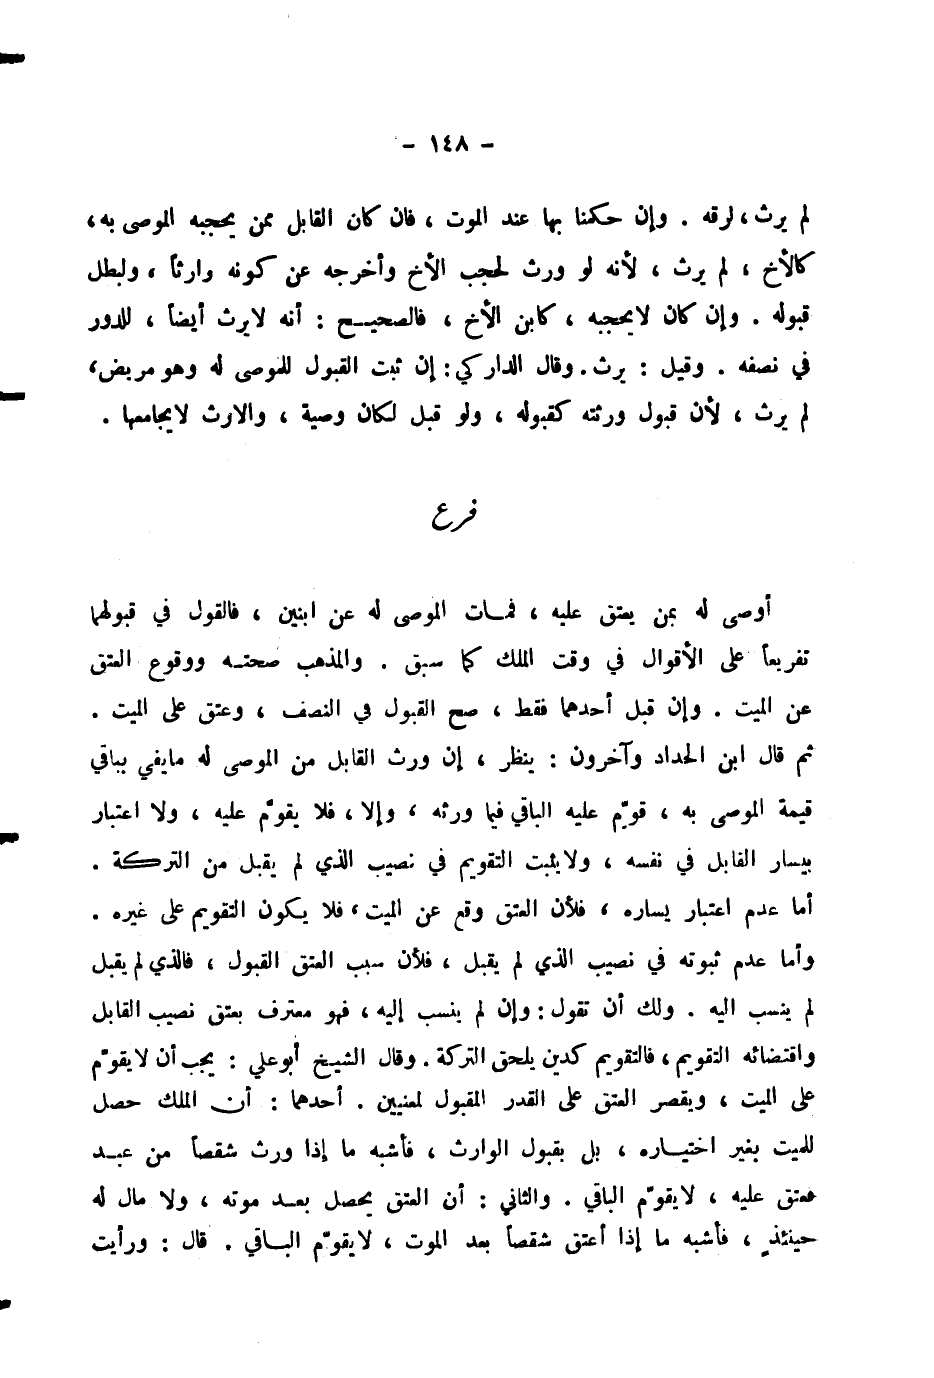 - ١٤٨ -
لم يرث، لرقه . وإن حكمنا بها عند الموت ، فان كان القابل ممن يحجبه الموصى به،
كالأخ ، لم يرث ، لأنه لو ورث لحجب الأخ وأخرجه عن كونه وارثاً ، ولبطل
قبوله . وإن كان لايحجبه ، كابن الأخ ، فالصحيح : أنه لايرث أيضاً ، للدور
في نصفه . وقيل : يرث . وقال الداركي : إن ثبت القبول للموصى له وهو مريض،
لم يرث ، لأن قبول ورثته كقبوله ، ولو قبل لكان وصية ، والارث لايجامعها .
فرع
أوصى له بمن يعتق عليه ، فمات الموصى له عن ابنين ، فالقول في قبولهما
تفريعاً على الأقوال في وقت الملك كما سبق . والمذهب صحته ووقوع العتق
عن الميت . وإن قبل أحدهما فقط ، صح القبول في النصف ، وعتق على الميت .
ثم قال ابن الحداد وآخرون : ينظر ، إن ورث القابل من الموصى له مايفي بباقي
قيمة الموصى به ، قوِّم عليه الباقي فيما ورثه ، وإلا ، فلا يقوَّم عليه ، ولا اعتبار
بيسار القابل في نفسه ، ولايثبت التقويم في نصيب الذي لم يقبل من التركة .
أما عدم اعتبار يساره ، فلأن العتق وقع عن الميت ، فلا يكون التقويم على غيره .
وأما عدم ثبوته في نصيب الذي لم يقبل ، فلأن سبب العتق القبول ، فالذي لم يقبل
لم ينسب اليه . ولك أن تقول : وإن لم ينسب إليه ، فهو معترف بعتق نصيب القابل
واقتضائه التقويم ، فالتقويم كدين يلحق التركة . وقال الشيخ أبوعلي : يجب أن لايقوَّم
على الميت ، ويقصر العتق على القدر المقبول لمعنيين . أحدهما : أن الملك حصل
للميت بغير اختياره ، بل بقبول الوارث ، فأشبه ما إذا ورث شقصاً من عبد
فعتق عليه ، لايقوَّم الباقي . والثاني : أن العتق يحصل بعد موته ، ولا مال له
حينئذٍ ، فأشبه ما إذا أعتق شقصاً بعد الموت ، لايقوَّم الباقي . قال : ورأيت